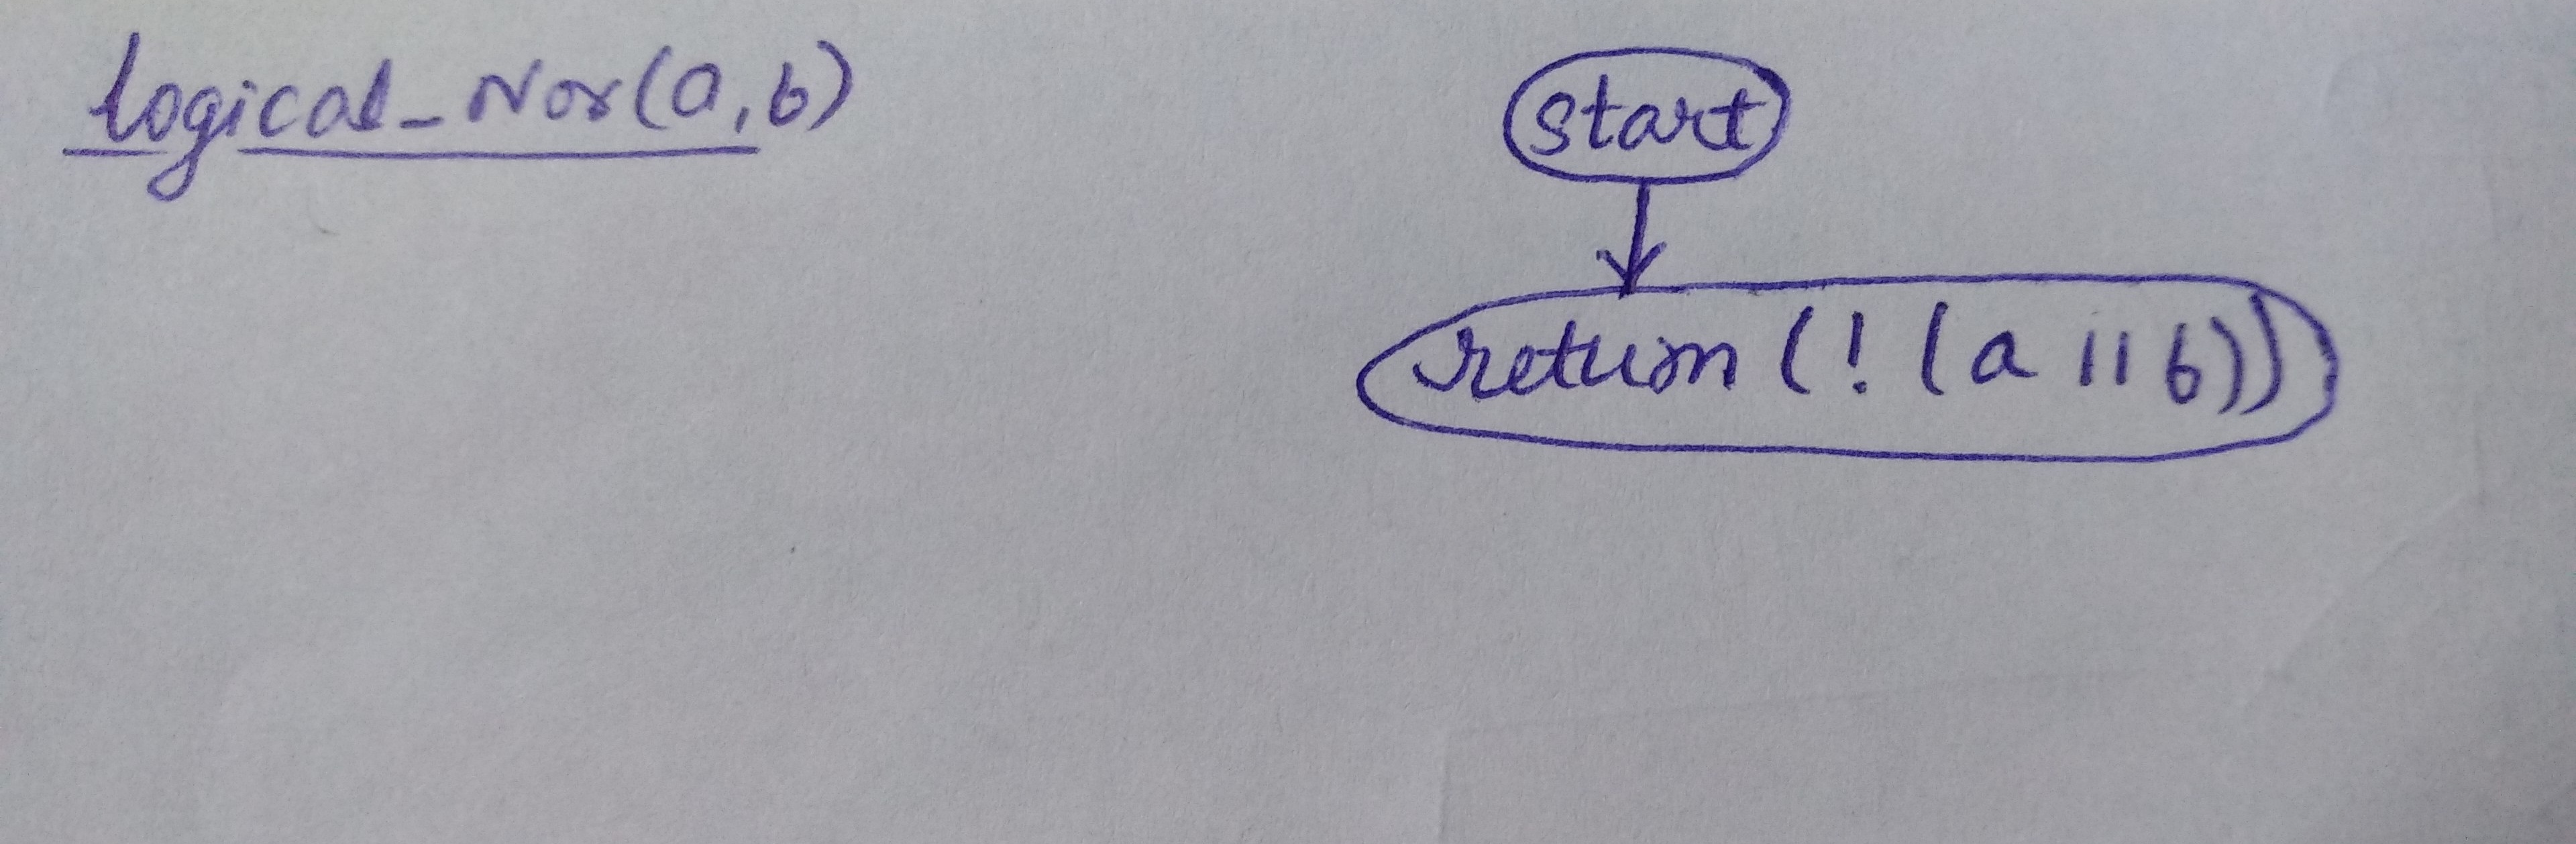 logical_Nor(a,b)
start
return(!(a||b))